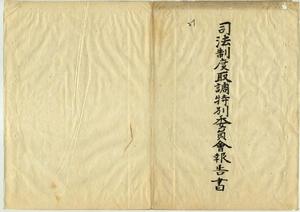 司法制度取調特別委員會報告書